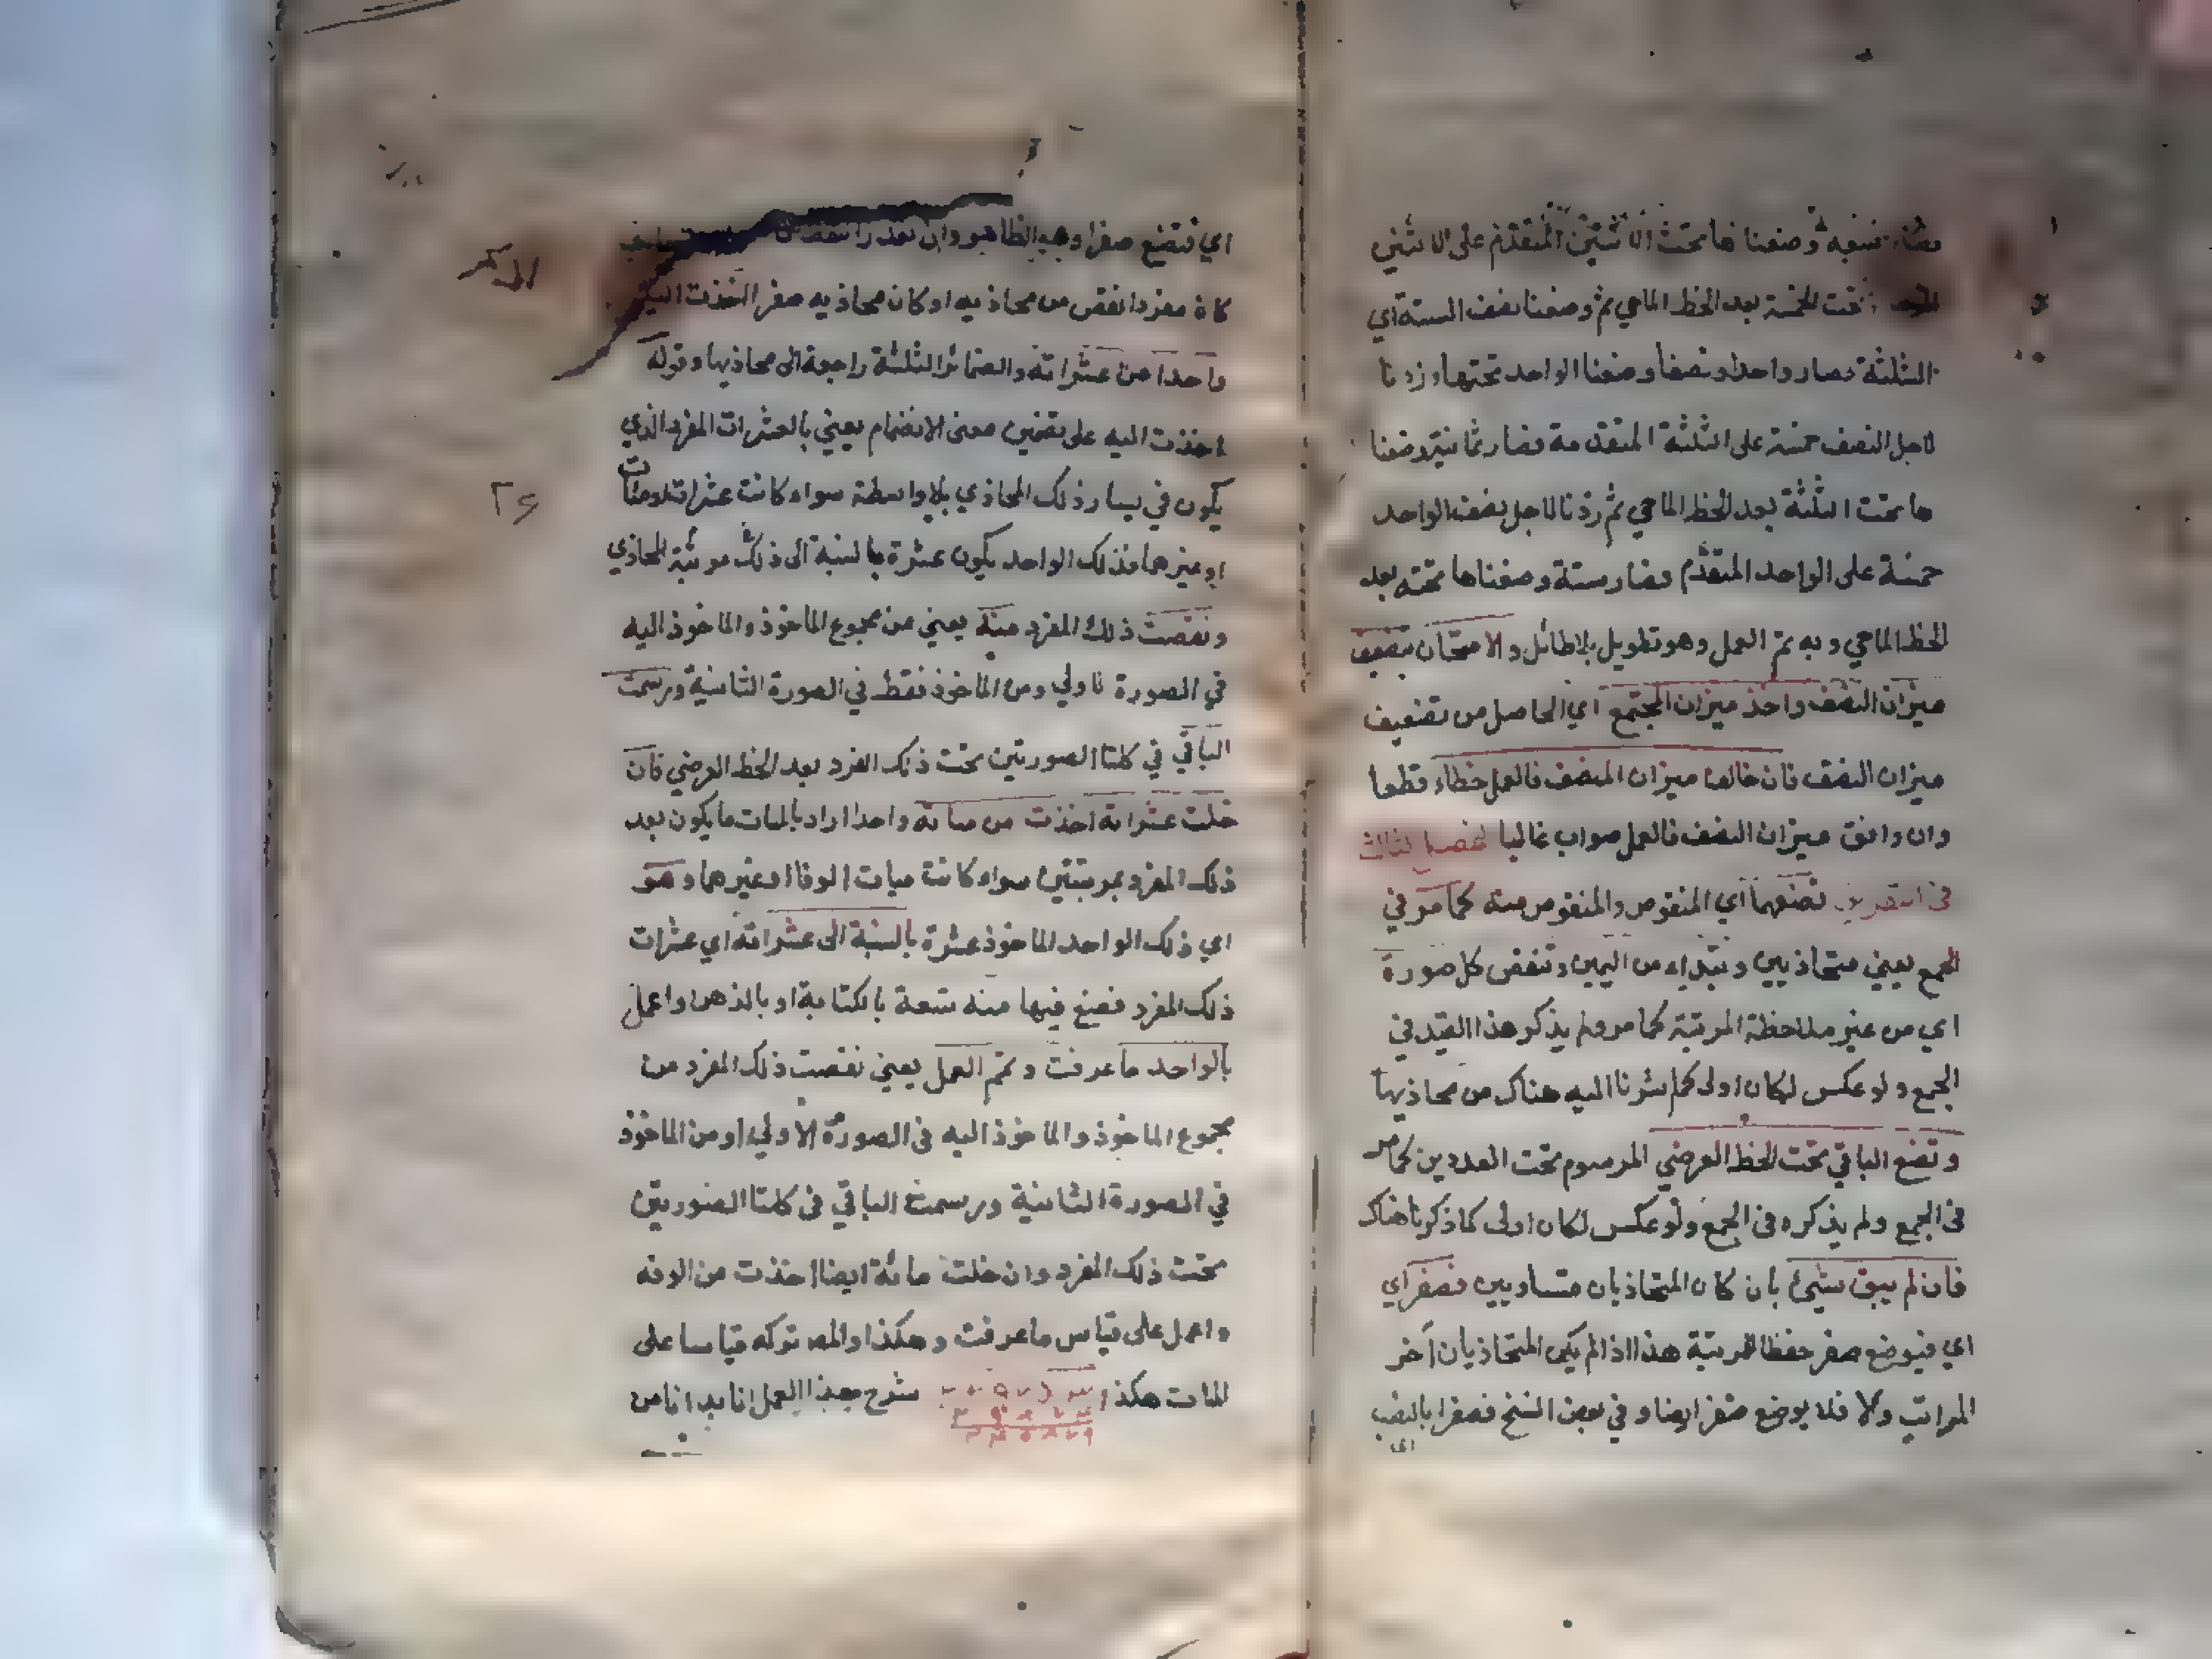 فصار تسعة وضعناها تحت الاثنين المتقدم على الاثنين
تحت الخمسة بعد الخط الماحي ثم وضعنا نصف الستة اي
الثلثة فصار واحدا ونصفا وضعنا الواحد تحتها وزدنا
لاجل النصف خمسة على الثلثة المتقدمة فصار ثمانية وضعنا
ها تحت الثلثة بعد الخط الماحي ثم زدنا لاجل نصف الواحد
خمسة على الواحد المتقدم فصار ستة وضعناها تحته بعد
الخط الماحي وبه تم العمل وهو تطويل بلا طائل والامتحان بتضعيف
ميزان النصف واخذ ميزان المجتمع اي الحاصل من تضعيف
ميزان النصف فان خالف ميزان المنصف فالعمل خطاء قطعا
وان وافق ميزان المنصف فالعمل صواب غالبا الفصل الثالث
في التفريق تضعهما اي المنقوص والمنقوص منه كما مر في
الجمع يعني متحاذيين وتبتداء من اليمين وتنقص كل صورة
اي من غير ملاحظة المرتبة كما مر ولم يذكر هذا القيد في
الجمع ولو عكس لكان اولى كما اشرنا اليه هناك من محاذيها
وتضع الباقي تحت الخط العرضي المرسوم تحت العددين كما مر
في الجمع ولم يذكره في الجمع ولو عكس لكان اولى كما ذكرنا هناك
فان لم يبق شيئ بان كان المتحاذيان متساويين فصفر اي
اي فيوضع صفر حفظا للمرتبة هذا اذا لم يكن المتحاذيان آخر
المراتب والا فلا يوضع صفر ايضا وفي بعض النسخ فصفرا بالنصب
اي
اي فتضع صفرا وهو الظاهر وان تعذر النقصان
كان مفردا نقص من محاذيه او كان محاذيه صفر اخذت اليه
واحدا من عشراته والضمائر الثلثة راجعة الى محاذيها وقوله
اخذت اليه على تضمين معنى الانضمام يعني بالعشرات المفرد الذي
يكون في يسار ذلك المحاذي بلا واسطة سواء كانت عشرات او مئات
او غيرهما فذلك الواحد يكون عشرة بالنسبة الى ذلك مرتبة المحاذي
ونقصت ذلك المفرد منه يعني من مجموع الماخوذ والماخوذ اليه
في الصورة الاولى ومن الماخوذ فقط في الصورة الثانية ورسمت
الباقي في كلتا الصورتين تحت ذلك المفرد بعد الخط العرضي فان
خلت عشراته اخذت من مئاته واحدا اراد بالمئات ما يكون بعد
ذلك المفرد بمرتبتين سواء كانت ميات الوفا او غيرهما وهو
اي ذلك الواحد الماخوذ عشرة بالنسبة الى عشراته اي عشرات
ذلك المفرد فضع فيها منه تسعة بالكتابة او بالذهن واعمل
بالواحد ما عرفت وتمم العمل يعني نقصت ذلك المفرد من
مجموع الماخوذ والماخوذ اليه في الصورة الاولى او من الماخوذ
في الصورة الثانية ورسمت الباقي في كلتا الصورتين
تحت ذلك المفرد وان خلت مائة ايضا اخذت من الوفه
واعمل على قياس ما عرفت وهكذا والمصـ تركه قياسا على
المات هكذا شرح هذا العمل انا بدانا من
٢٤